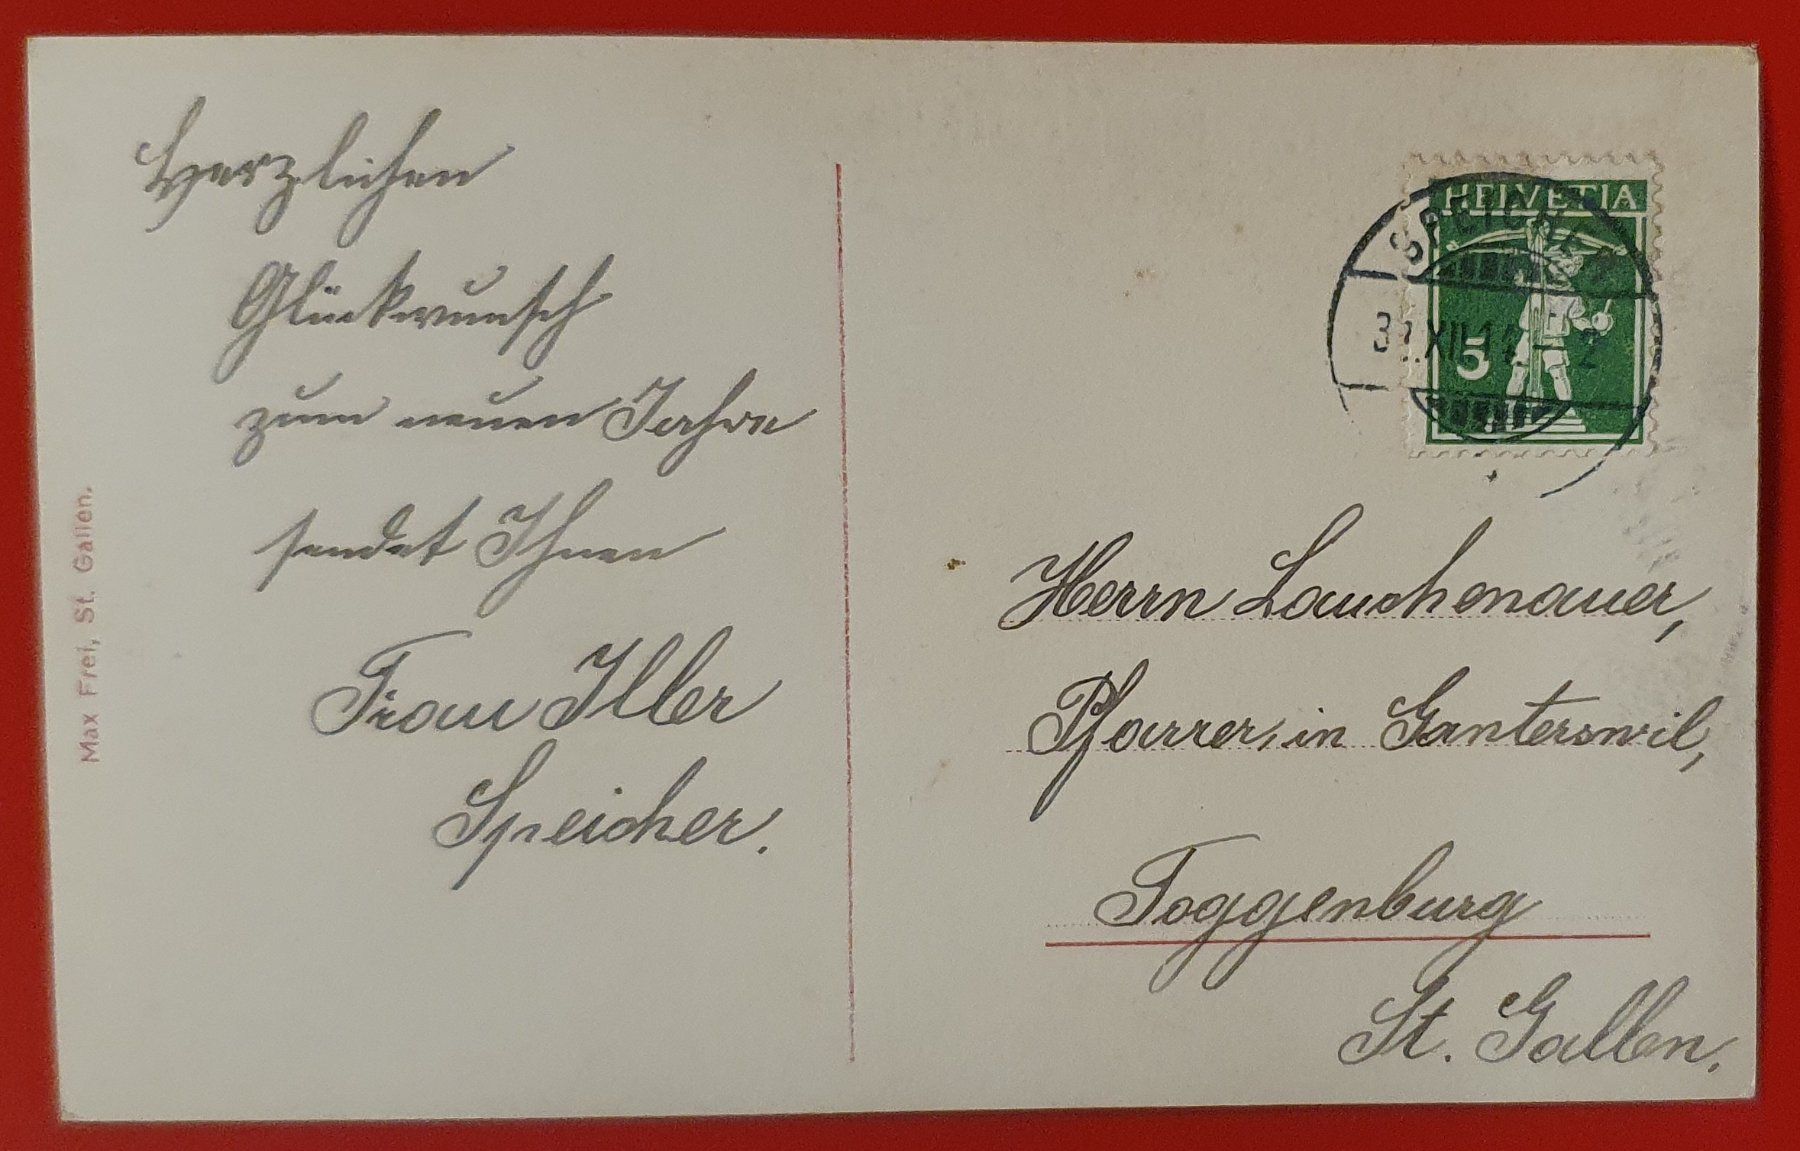 Herzlichen
Glückwunsch
zum neuen Jahre
sendet Ihnen
Frau Iller
Speicher.
Max Frei, St. Gallen.
HELVETIA
SPEICHER
XII
5
Herrn Lauchenauer,
Pfarrer, in Ganterswil,
Toggenburg
St. Gallen.